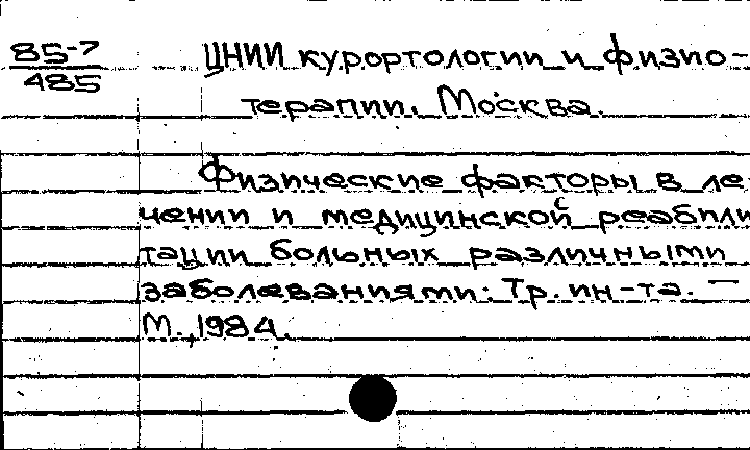 85-7
485
ЦНИИ курортологии и физио-
терапии. Москва.
Физические факторы в ле-
чении и медицинской реабили
тации больных различными
заболеваниями: Тр. ин-та. —
М., 1984.